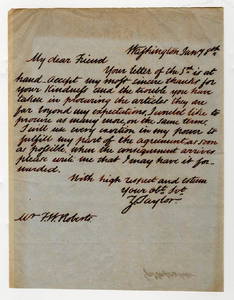 Washington Jany 8th
My dear Friend
Your letter of the 5th is at
hand. Accept my most sincere thanks for
your Kindness and the trouble you have
taken in procuring the articles they are
far beyond my expectations, I would like to
procure as many more, on the same terms,
I will use every exertion in my power to
fulfill my part of the agreement as soon
as possible, when the consignment arrives
please write me that I may have it for-
warded.
With high respect and esteem
Your Obt. Svt.
Z. Taylor.
Mr F. H. Roberts